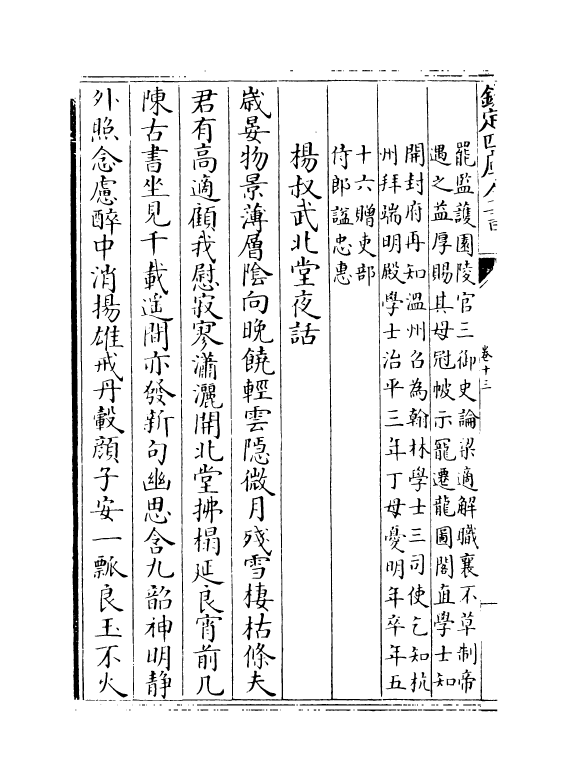 欽定四庫全書
卷十三
罷監護園陵官三御史論梁適解職襄不草制帝
遇之益厚賜其母冠帔示寵遷龍圖閣直學士知
開封府再知溫州召為翰林學士三司使乞知杭
州拜端明殿學士治平三年丁母憂明年卒年五
十六贈吏部
侍郎諡忠惠
楊叔武北堂夜話
歲晏物景薄層陰向晚饒輕雲隱微月殘雪棲枯條夫
君有高適顧我慰寂寥瀟灑開北堂拂榻延良宵前几
陳古書坐見千載遙間亦發新句幽思含九韶神明靜
外照念慮醉中消揚雄戒丹轂顏子安一瓢良玉不火